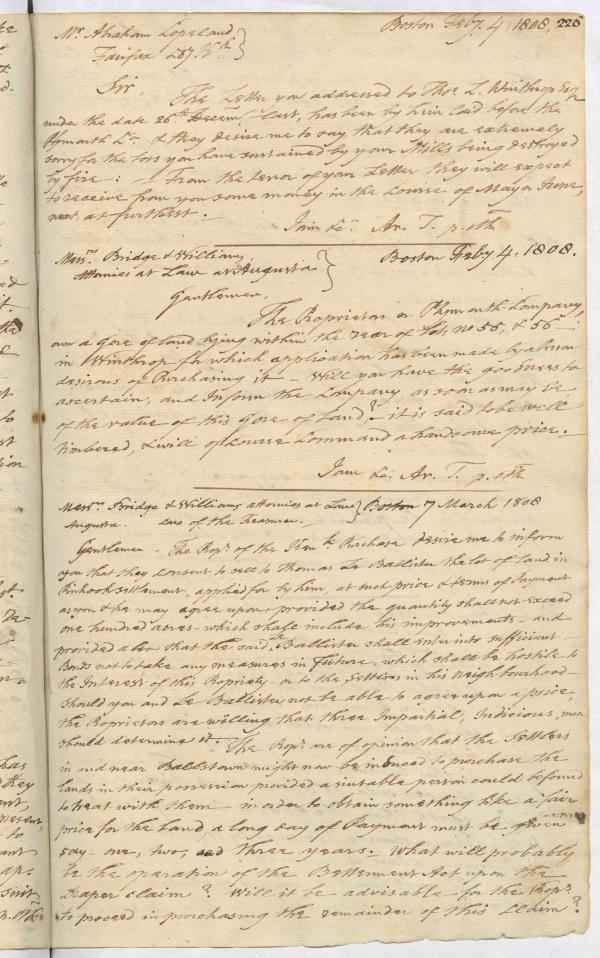 Boston Feby. 4 1808. 226
Mr. Abraham Copeland
Fairfax
Sir,
The Letter you addressed to Thos. L. Winthrop Esqr
under the date 26th Decem. last, has been by him laid before the
Plymouth Co. & they desire me to say that they are extremely
sorry for the loss you have sustained by your Mills being destroyed
by fire: From the tenor of your Letter they will expect
to receive from you some money in the Course of May or June,
next at furthest.
I am &c. Ar. T. p. oth
Messrs. Bridge & Williams
Attornies at Law at Augusta
Boston Feby 4. 1808.
Gentlemen,
The Proprietors or Plymouth Company,
own a Gore of land lying within the rear of Lots, No 55, & 56
in Winthrop for which application has been made by a Person
desirous of Purchasing it - Will you have the goodness to
ascertain, and Inform the Company, as soon as may be
of the value of this Gore of Land? it is said to be well
timbered, & will of Course Command a handsome price.
I am &c. Ar. T. p. oth
Messrs. Bridge & Williams attornies at Law
Augusta.
Boston 7 March 1808
care of the Treasurer.
Gentlemen - The Props. of the Kenk. Purchase desire me to inform
you that they consent to sell to Thomas Le Ballister the lot of land in
Pinhook settlement, applied for by him, at such price & terms of Payment
as you & he may agree upon - provided the quantity shall not exceed
one hundred acres - which shall include his improvements - and
provided also that the said Le Ballister shall enter into sufficient
Bonds not to take any measures in future, which shall be hostile to
the Interest of this Propriety - or to the settlers in his neighbourhood -
Should you and Le Ballister not be able to agree upon a price,
the Proprietors are willing that three Impartial, Judicious, men
should determine it. The Props. are of opinion that the Settlers
in and near Ballstown might now be induced to purchase the
lands in their possession provided a suitable person could be found
to treat with them - in order to obtain something like a fair
price for the Land a long day of Payment must be given
say - one, two, and three years. What will probably
be the operation of the Betterment Act upon the
Draper claim? Will it be advisable for the Props.
to proceed in purchasing the remainder of this Claim?